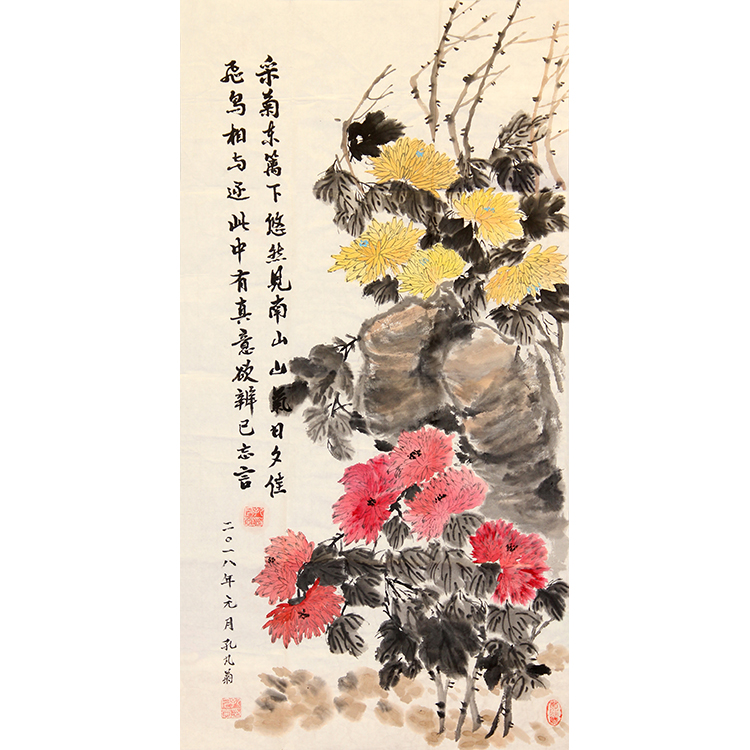 采菊东篱下悠然见南山山氣日夕佳
飞鸟相与还此中有真意欲辨已忘言
二〇一八年元月孔凡菊